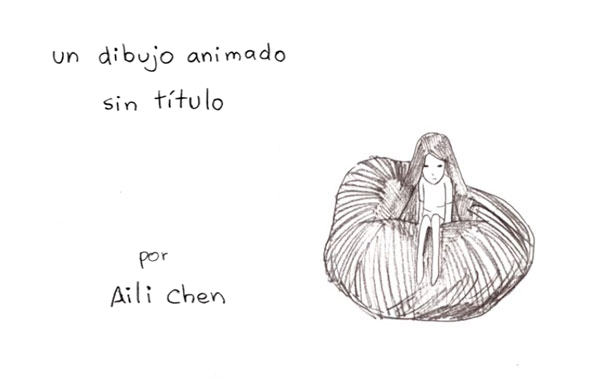 un dibujo animado
sin título
por
Aili Chen